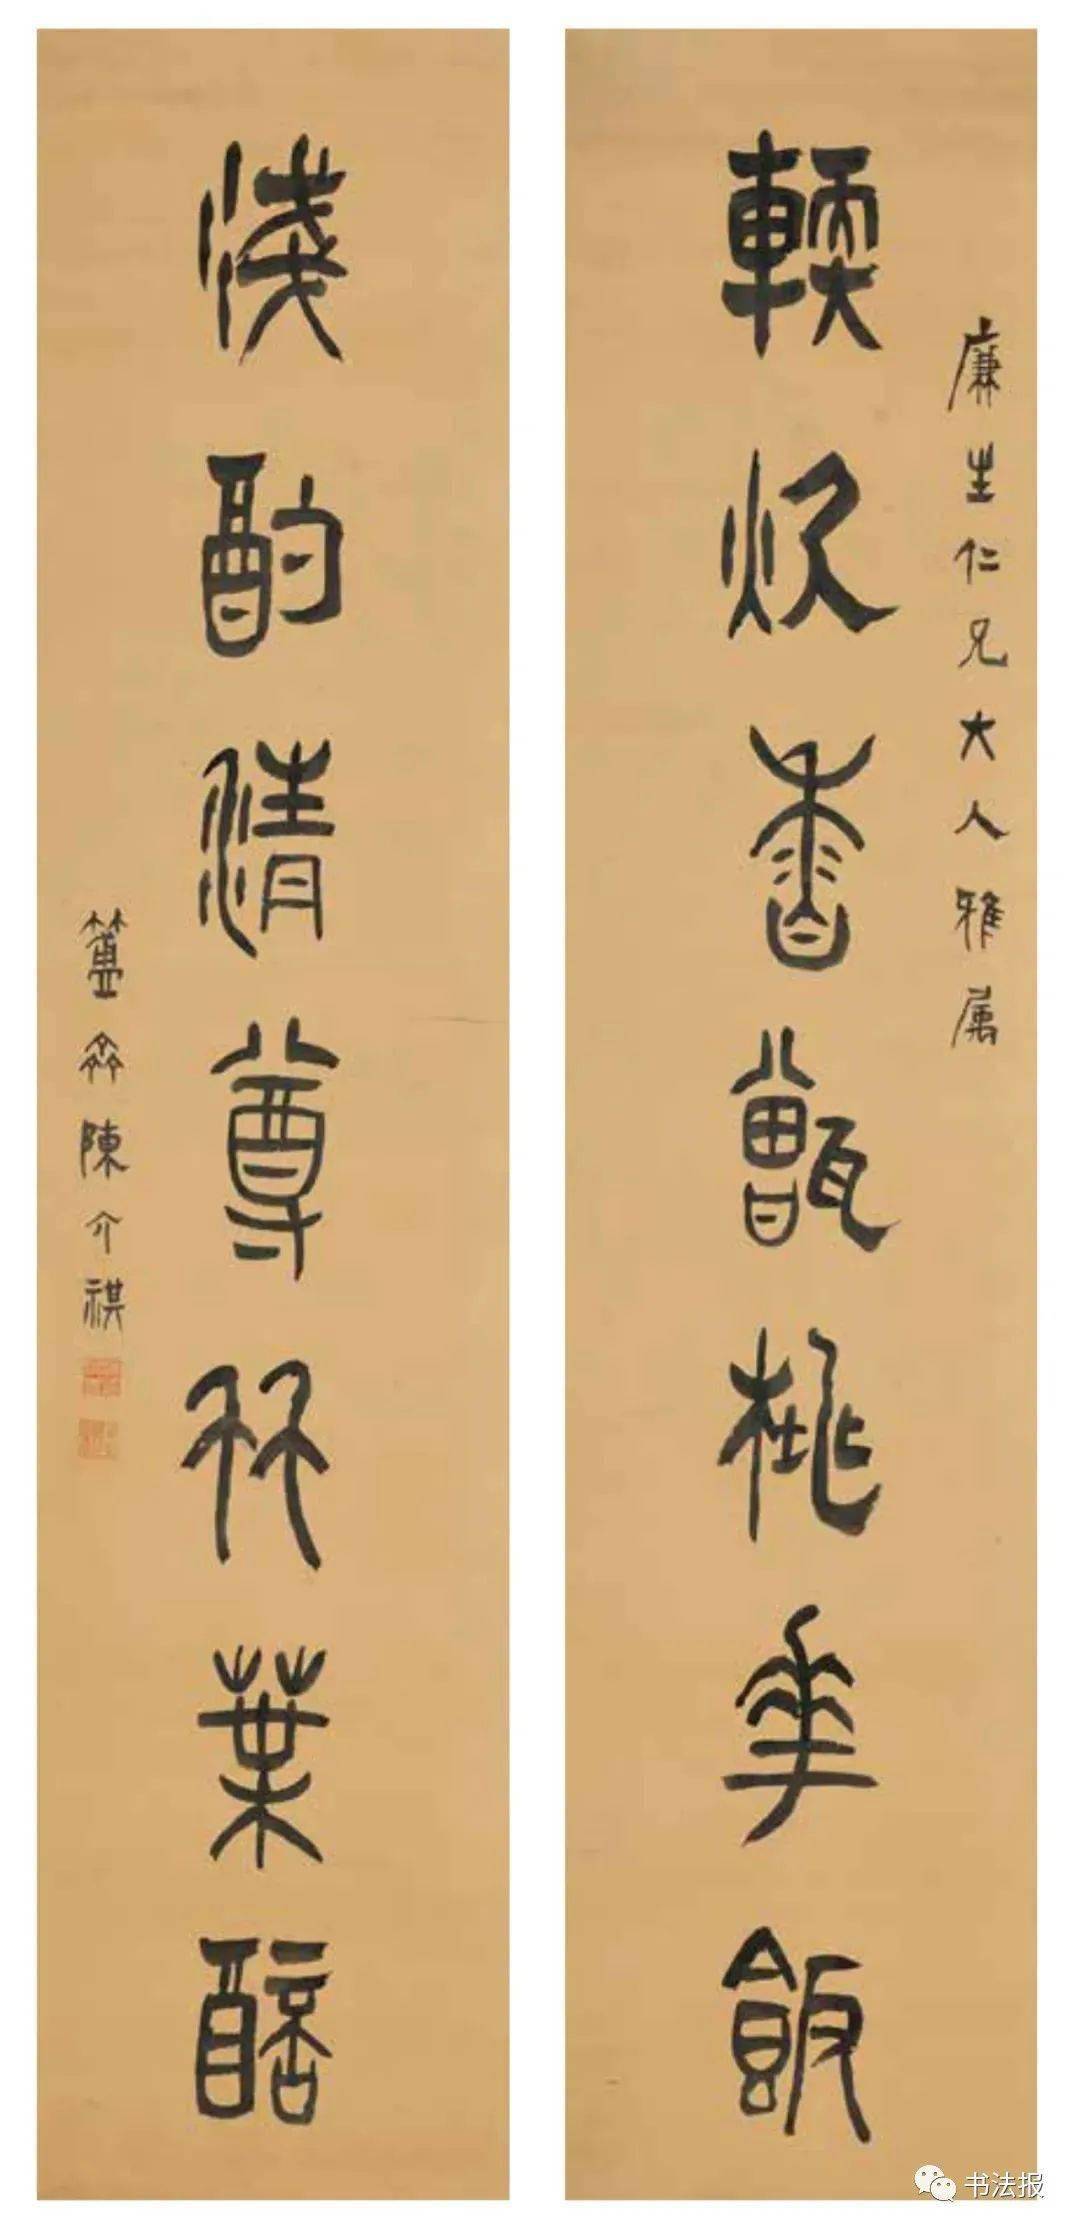 廉生仁兄大人雅属
輭炊香甑桃華飯
淺酌清尊竹葉醅
簠齋陳介祺
书法报